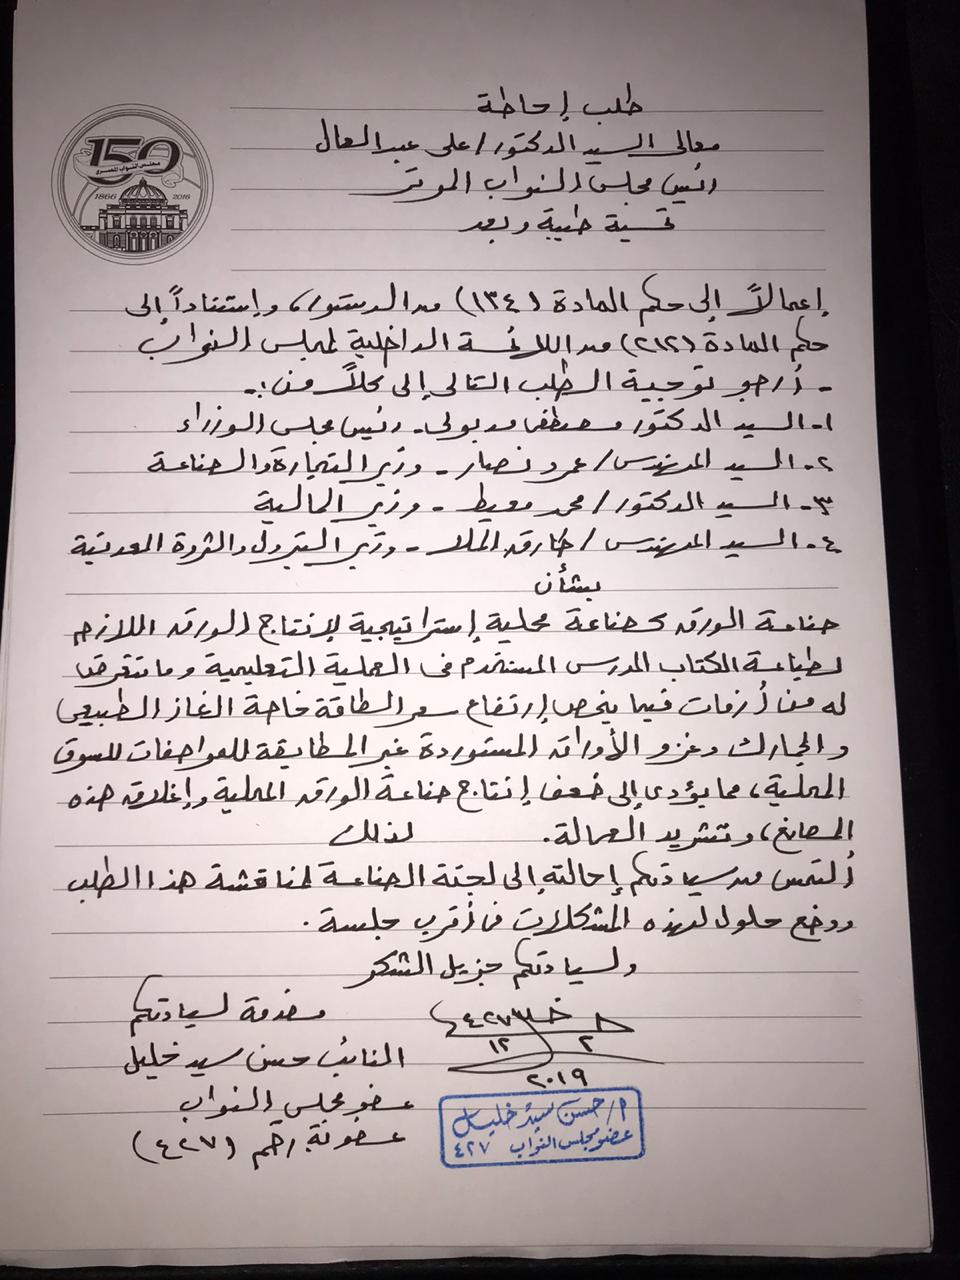 150
مجلس النواب المصري
1866 2016
طلب إحاطة
معالى السيد الدكتور/ على عبد العال
رئيس مجلس النواب الموقر
تحية طيبة وبعد
إعمالاً إلى حكم المادة (١٣٤) من الدستور، وإستناداً إلى
حكم المادة (٢١٢) من اللائحة الداخلية لمجلس النواب
- أرجو توجية الطلب التالى إلى كلاً من :-
١- السيد الدكتور مصطفى مدبولى - رئيس مجلس الوزراء
٢- السيد المهندس/ عمرو نصار - وزير التجارة والصناعة
٣- السيد الدكتور/ محمد معيط - وزير المالية
٤- السيد المهندس/ طارق الملا - وزير البترول والثروة المعدنية
بشأن
صناعة الورق كصناعة محلية إستراتيجية لإنتاج الورق اللازم
لطباعة الكتاب المدرسى المستخدم فى العملية التعليمية وما تتعرض
له من أزمات فيما يخص إرتفاع سعر الطاقة خاصة الغاز الطبيعى
والجمارك وغزو الأوراق المستوردة غير المطابقة للمواصفات للسوق
المحلية، مما يؤدى إلى ضعف إنتاج صناعة الورق المحلية وإغلاق هذه
المصانع، وتشريد العمالة. لذلك
ألتمس من سيادتكم إحالته إلى لجنة الصناعة لمناقشة هذا الطلب
ووضع حلول لهذه المشكلات فى أقرب جلسة.
ولسيادتكم جزيل الشكر
مقدمة لسيادتكم
النائب حسن سيد خليل
عضو مجلس النواب
عضوية رقم (٤٢٧)
٤٢٧
٢ ١٢
٢٠١٩
م/ حسن سيد خليل
عضو مجلس النواب ٤٢٧